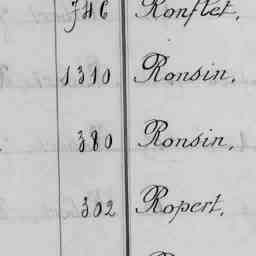 746 Ronflet,
1310 Ronsin,
380 Ronsin,
302 Ropert,